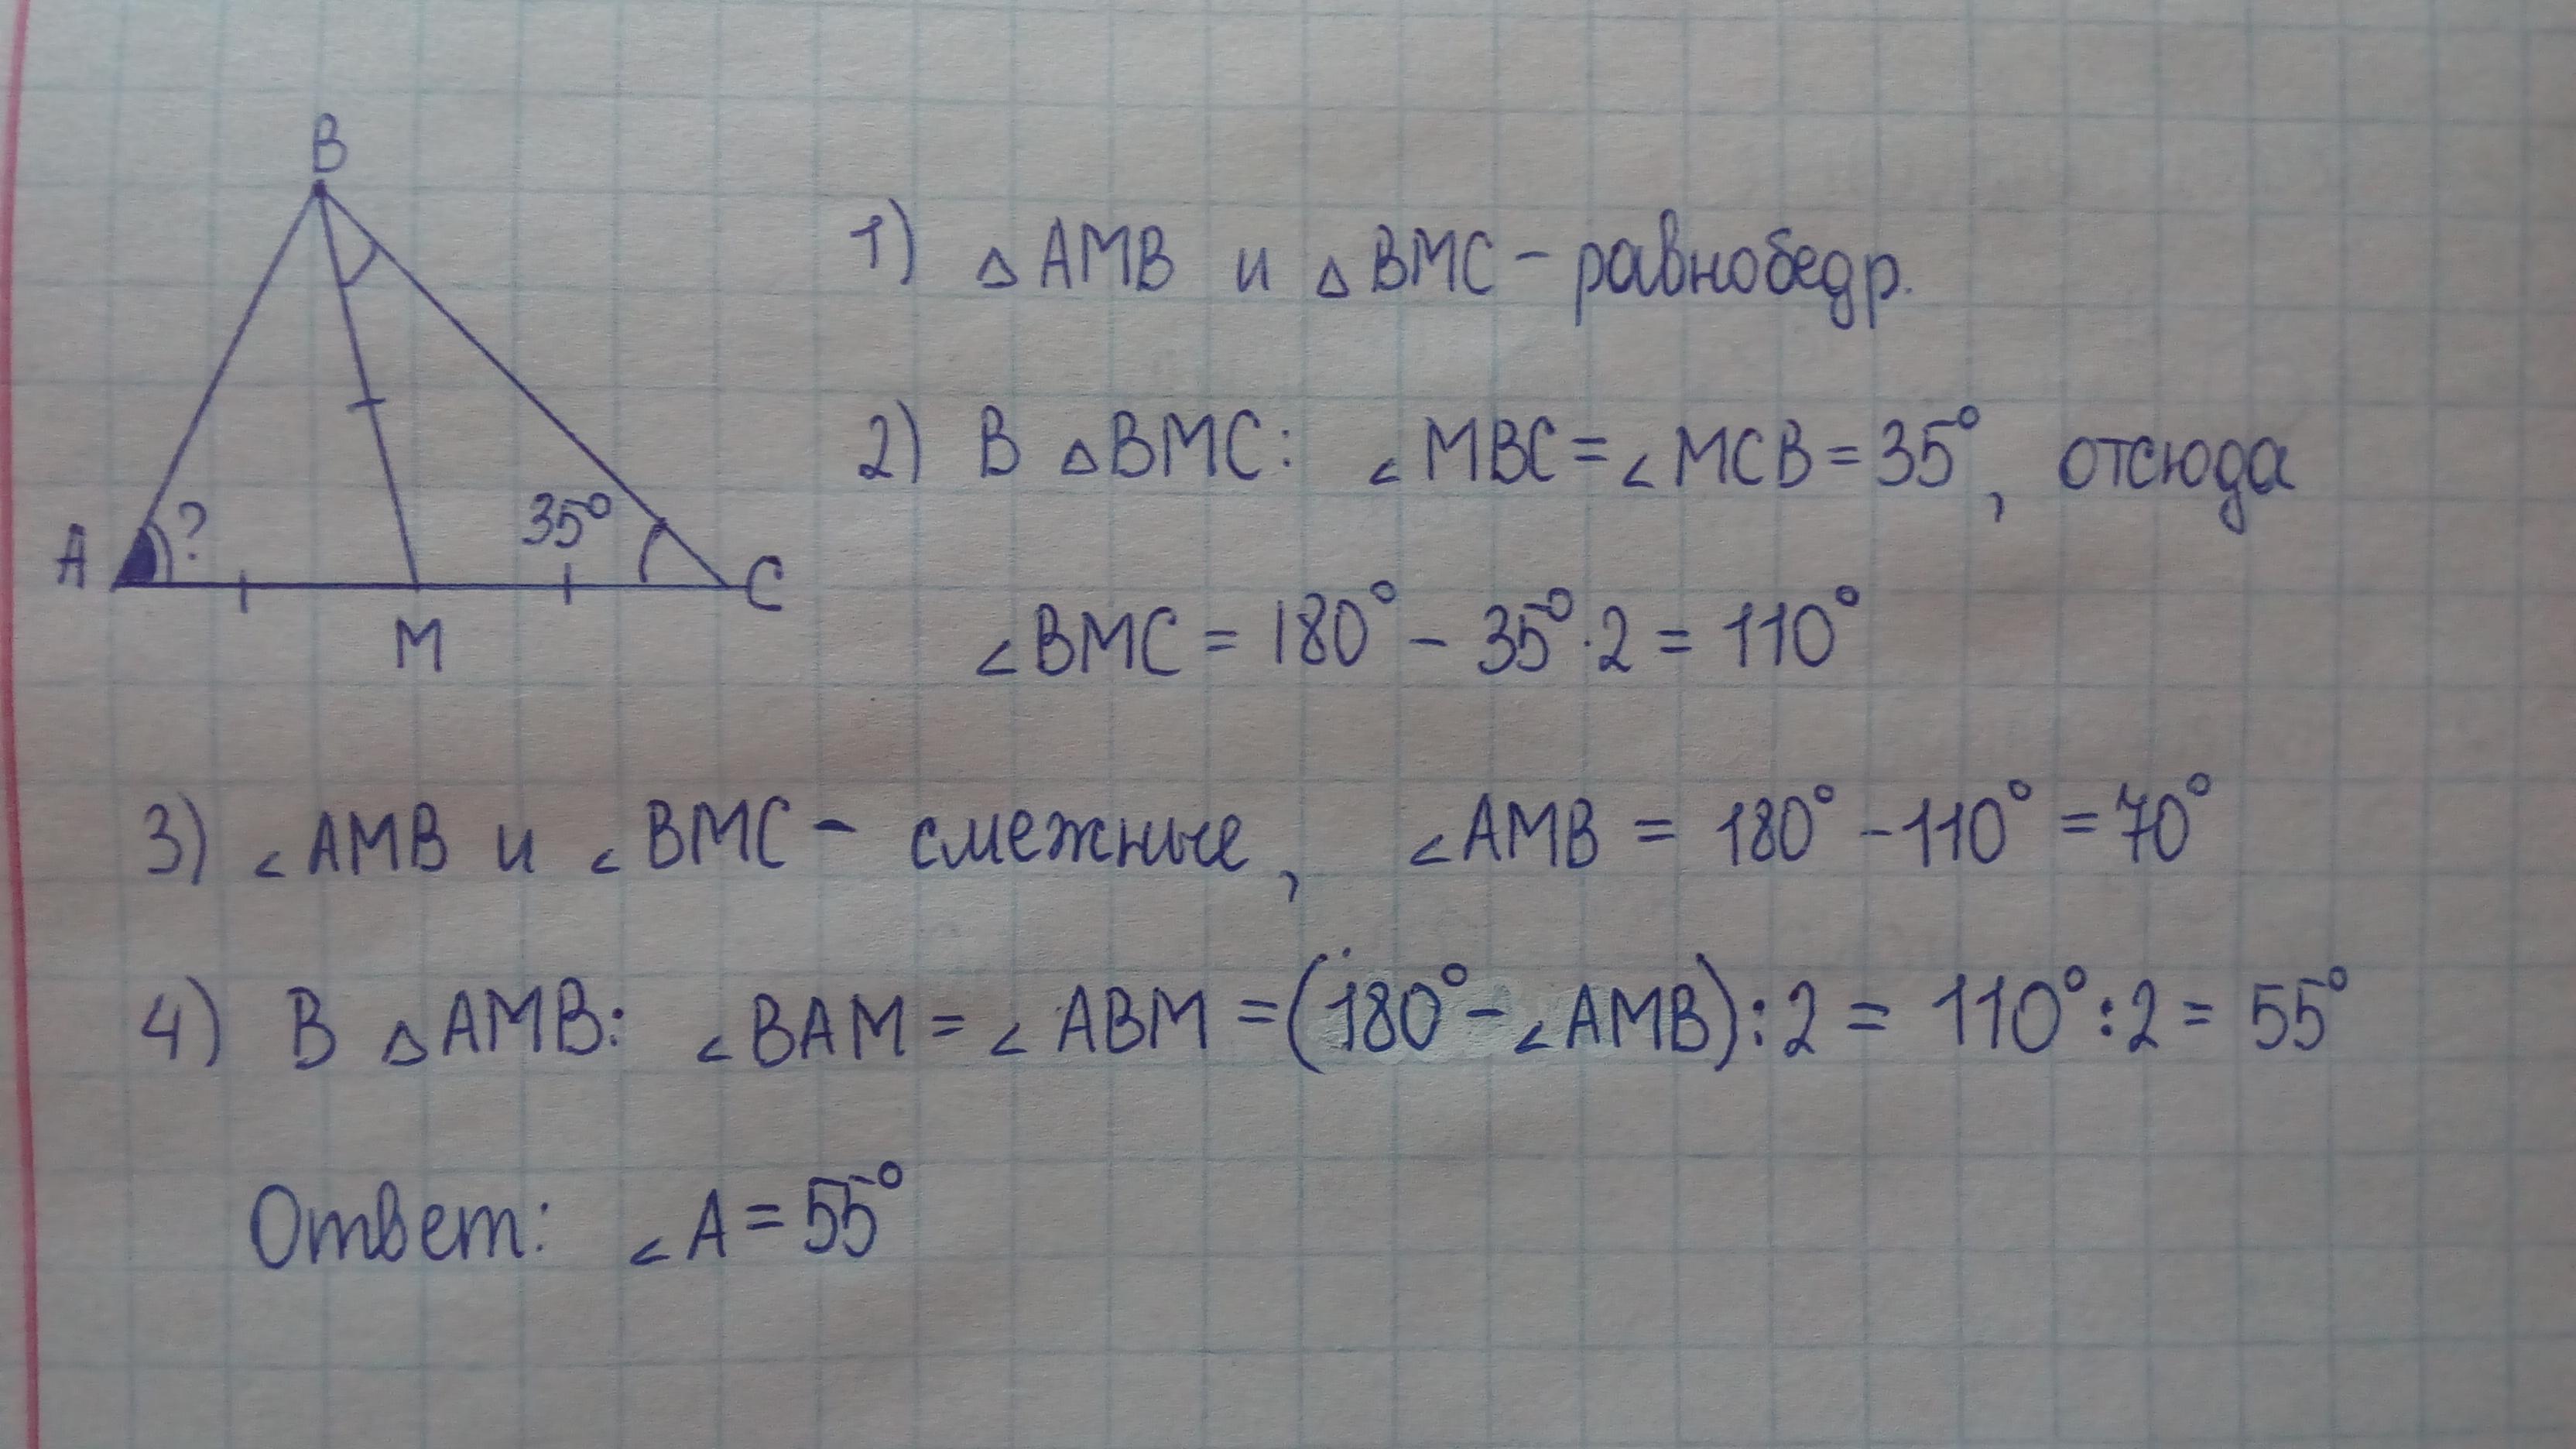 B
A
?
35°
C
M
1) △AMB и △BMC - равнобедр.
2) В △BMC: ∠MBC = ∠MCB = 35°, отсюда
∠BMC = 180° - 35°·2 = 110°
3) ∠AMB и ∠BMC - смежные, ∠AMB = 180° - 110° = 70°
4) В △AMB: ∠BAM = ∠ABM = (180° - ∠AMB):2 = 110°:2 = 55°
Ответ: ∠A = 55°